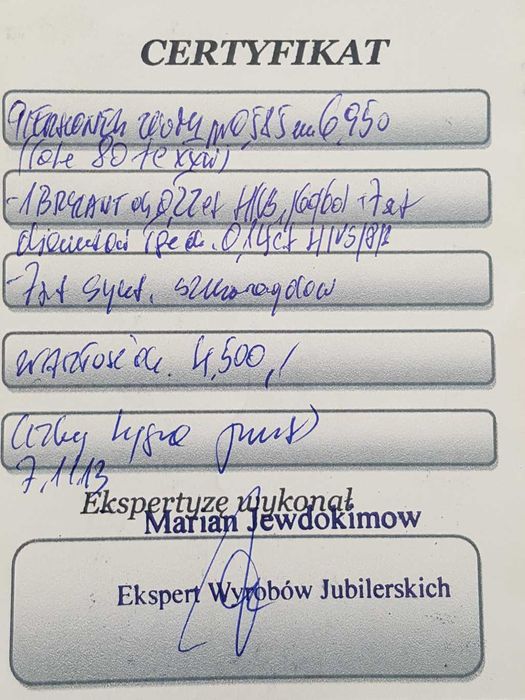 CERTYFIKAT
Pierścionek złoty pr 0,585 m 6,950
(lata 80 te XXw)
- 1 BRYLANT ok 0,22ct H/VS, + 7szt
diamentów ok. 0,14ct H/VS/8/8
- 7szt synt. szmaragdów
WARTOŚĆ ok. 4,500,/
7,11,13
Ekspertyzę wykonał
Marian Jewdokimow
Ekspert Wyrobów Jubilerskich